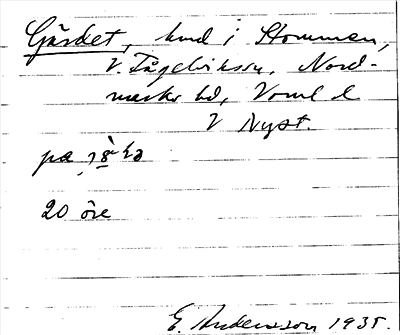 Gärdet, hmd i Stommen,
V. Fågelviksn, Nord-
marks hd, Vrml l
V Nyst.
på
20 öre
E. Andersson 1935.